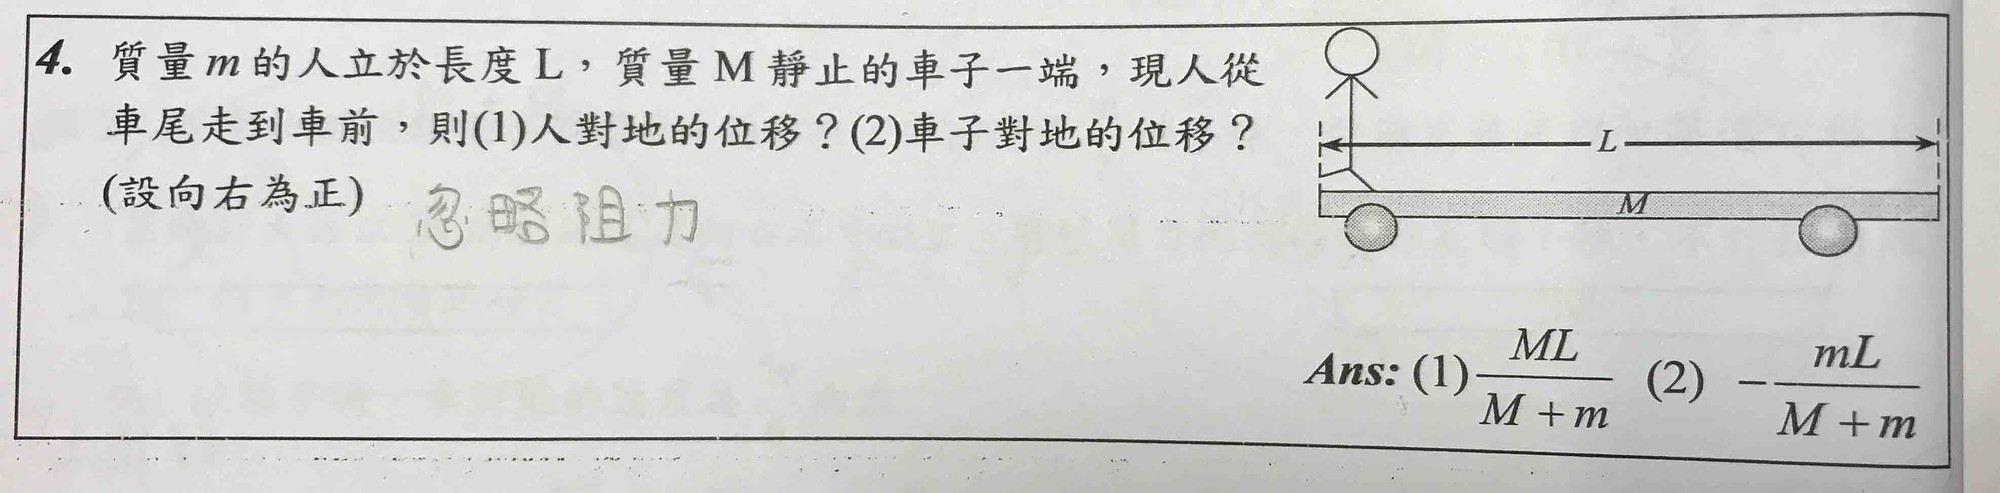 4. 質量m的人立於長度L，質量M靜止的車子一端，現人從
車尾走到車前，則(1)人對地的位移？(2)車子對地的位移？
(設向右為正) 忽略阻力
L
M
Ans: (1) ML/(M+m) (2) -mL/(M+m)